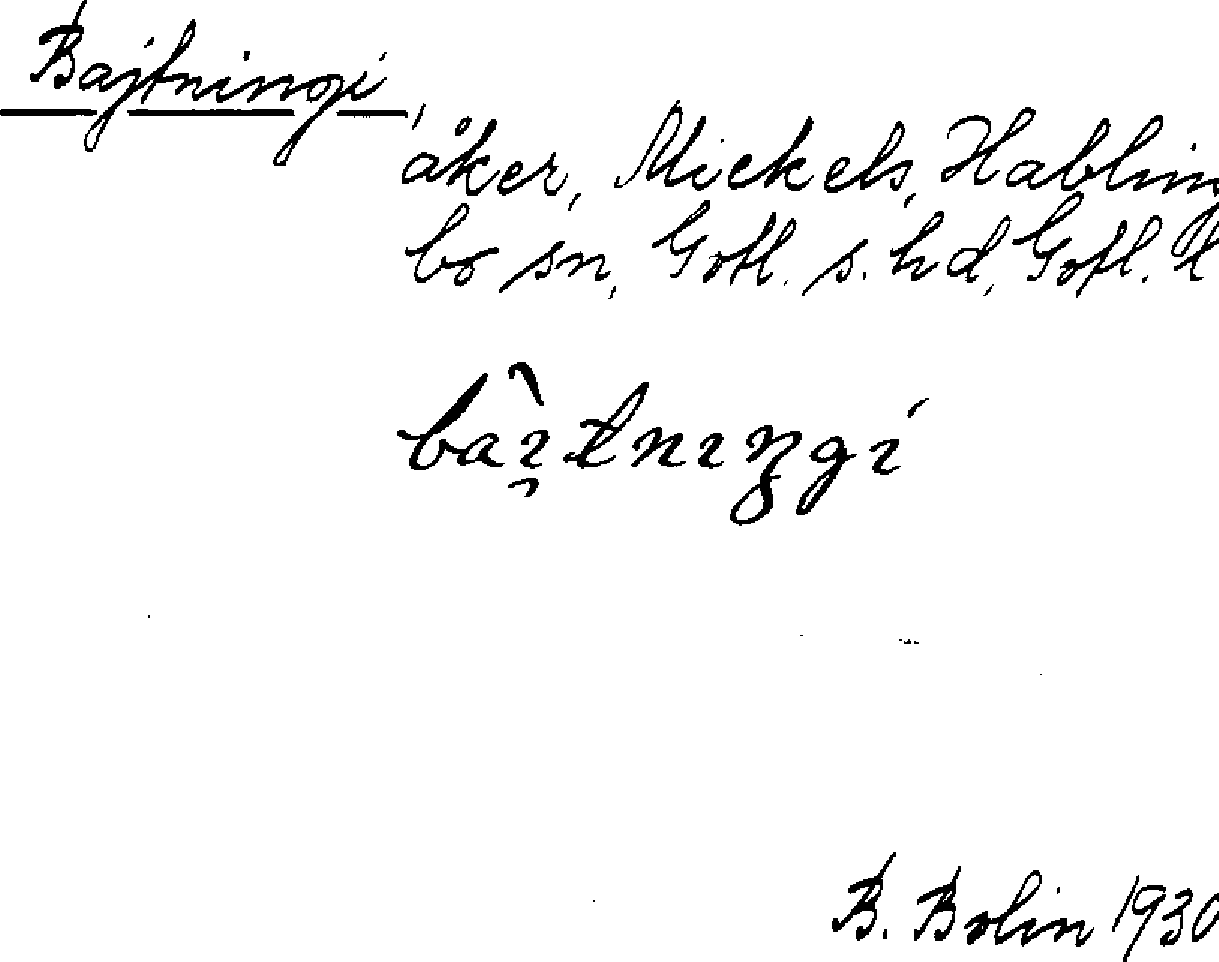 Bajtningi,
åker, Mickels, Habling
bo sn, Gotl. s. hd, Gotl. l
bàı̯tnıŋgı
B. Bolin 1930